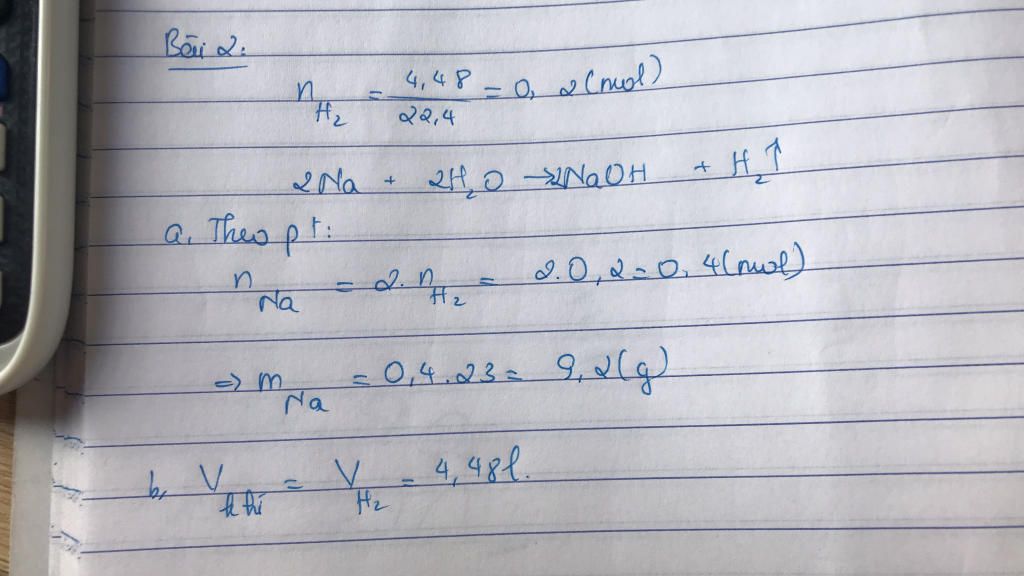 Bài 2:
n H₂ = 4,48 / 22,4 = 0,2 (mol)
2Na + 2H₂O → 2NaOH + H₂↑
a, Theo pt:
n Na = 2. n H₂ = 2.0,2 = 0,4 (mol)
⇒ m Na = 0,4.23 = 9,2 (g)
b, V khí = V H₂ = 4,48 l.